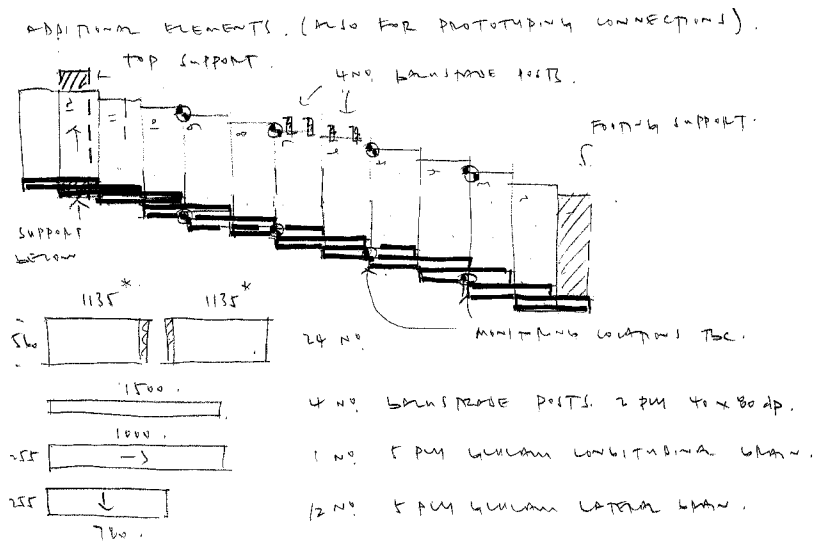 ADDITIONAL ELEMENTS. (ALSO FOR PROTOTYPING CONNECTIONS).
TOP SUPPORT.
4 NO. BALUSTRADE POSTS.
FOOTING SUPPORT.
12 11 10 9 8 7 6 5 4 3 2 1
SUPPORT
BELOW
1135* 1135*
560 24 NO.
MONITORING LOCATIONS TBC.
1500.
4 NO. BALUSTRADE POSTS. 2 PLY 40 x 80 dp.
1000.
255 1 NO. 5 PLY GLULAM LONGITUDINAL GRAIN.
255 12 NO. 5 PLY GLULAM LATERAL GRAIN.
780.